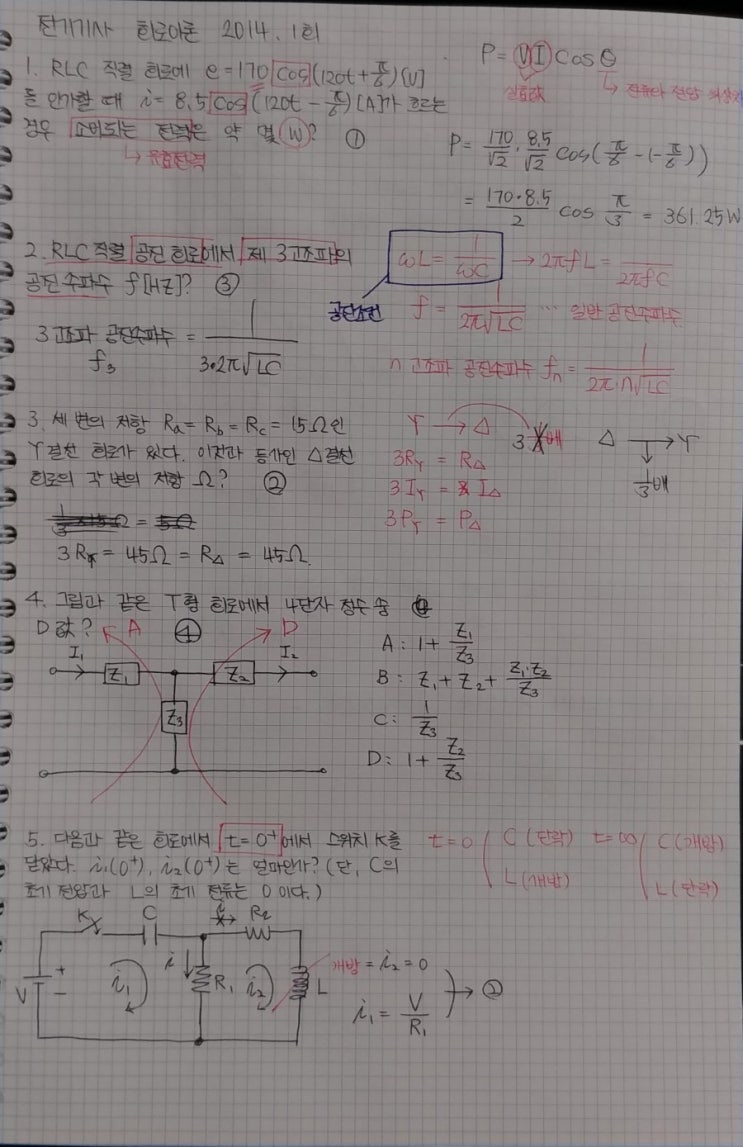 전기기사 회로이론 2014. 1회
1. RLC 직렬 회로에 e = 170 cos(120t + π/6) [V]
를 인가할 때 i = 8.5 cos(120t - π/6) [A]가 흐르는
경우 소비되는 전력은 약 몇 (W)? ①
↳ 유효전력
P = VI Cos θ
실효값
↳ 전류와 전압 위상차
P = 170/√2 · 8.5/√2 cos(π/6 - (-π/6))
= 170·8.5/2 cos π/3 = 361.25W
2. RLC 직렬 공진 회로에서 제 3고조파의
공진주파수 f[HZ]? ③
3고조파 공진주파수 = 1/3·2π√LC
f₃
ωL = 1/ωC → 2πfL = /2πfC
공진조건
f = 1/2π√LC … 일반 공진주파수
n고조파 공진주파수 fn = 1/2π·n√LC
3. 세 변의 저항 Ra = Rb = Rc = 15Ω인
Y결선 회로가 있다. 이것과 등가인 △결선
회로의 각 변의 저항 Ω? ②
1/3 × 15Ω = 5Ω
3RY = 45Ω = R△ = 45Ω
Y → △ 3배
△ → Y
1/3배
3RY = R△
3IY = I△
3PY = P△
4. 그림과 같은 T형 회로에서 4단자 정수 중
D값? ④
A D
I₁ Z₁ Z₂ I₂
Z₃
A : 1 + Z₁/Z₃
B : Z₁ + Z₂ + Z₁·Z₂/Z₃
C : 1/Z₃
D : 1 + Z₂/Z₃
5. 다음과 같은 회로에서 t = 0⁺에서 스위치 K를
닫았다. i₁(0⁺), i₂(0⁺)는 얼마인가? (단, C의
초기 전압과 L의 초기 전류는 0 이다.)
t = 0 C (단락)
L (개방)
t = ∞ C (개방)
L (단락)
K C R₂
V + - i₁ i R₁ i₂ L
개방 = i₂ = 0
i₁ = V/R₁ → ②